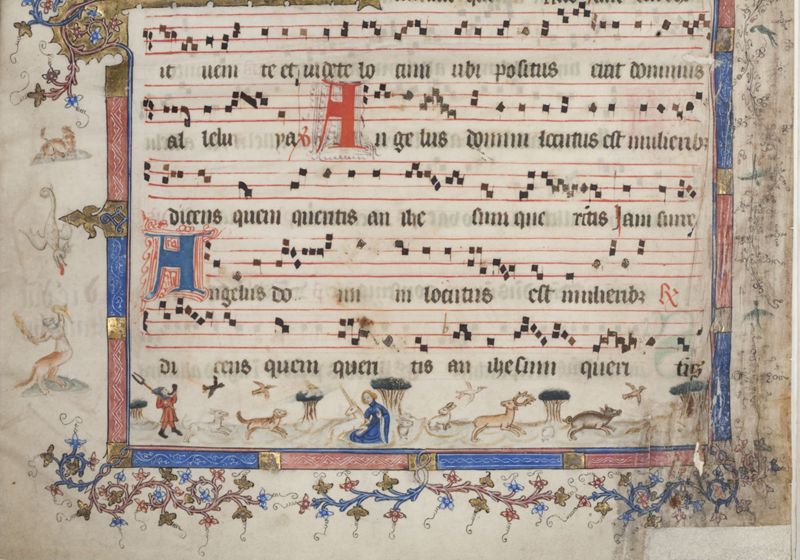 it uem te et uidete lo cum ubi positus erat dominus
al lelu ya An ge lus domini locutus est mulierib3
dicens quem queritis an ihe sum que ritis Jam surre
Angelus do mi ni locutus est mulierib3
di cens quem queri tis an ihesum queri tis